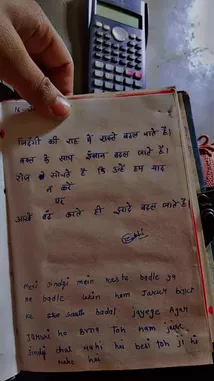 जिंदगी की राह में रास्ते बदल जाते है।
वक्त के साथ इंसान बदल जाते है।
रोज सोचते है कि उन्हें हम याद
न करें
पर
आखें बंद करते ही इरादे बदल जाते है।
meri zindgi mein raste badle ya
na badle lekin hem Jarur
ke saath badal jayege Agar
Toh ham
zindgi chal rahi hai besi toh ji hi
rahe hai